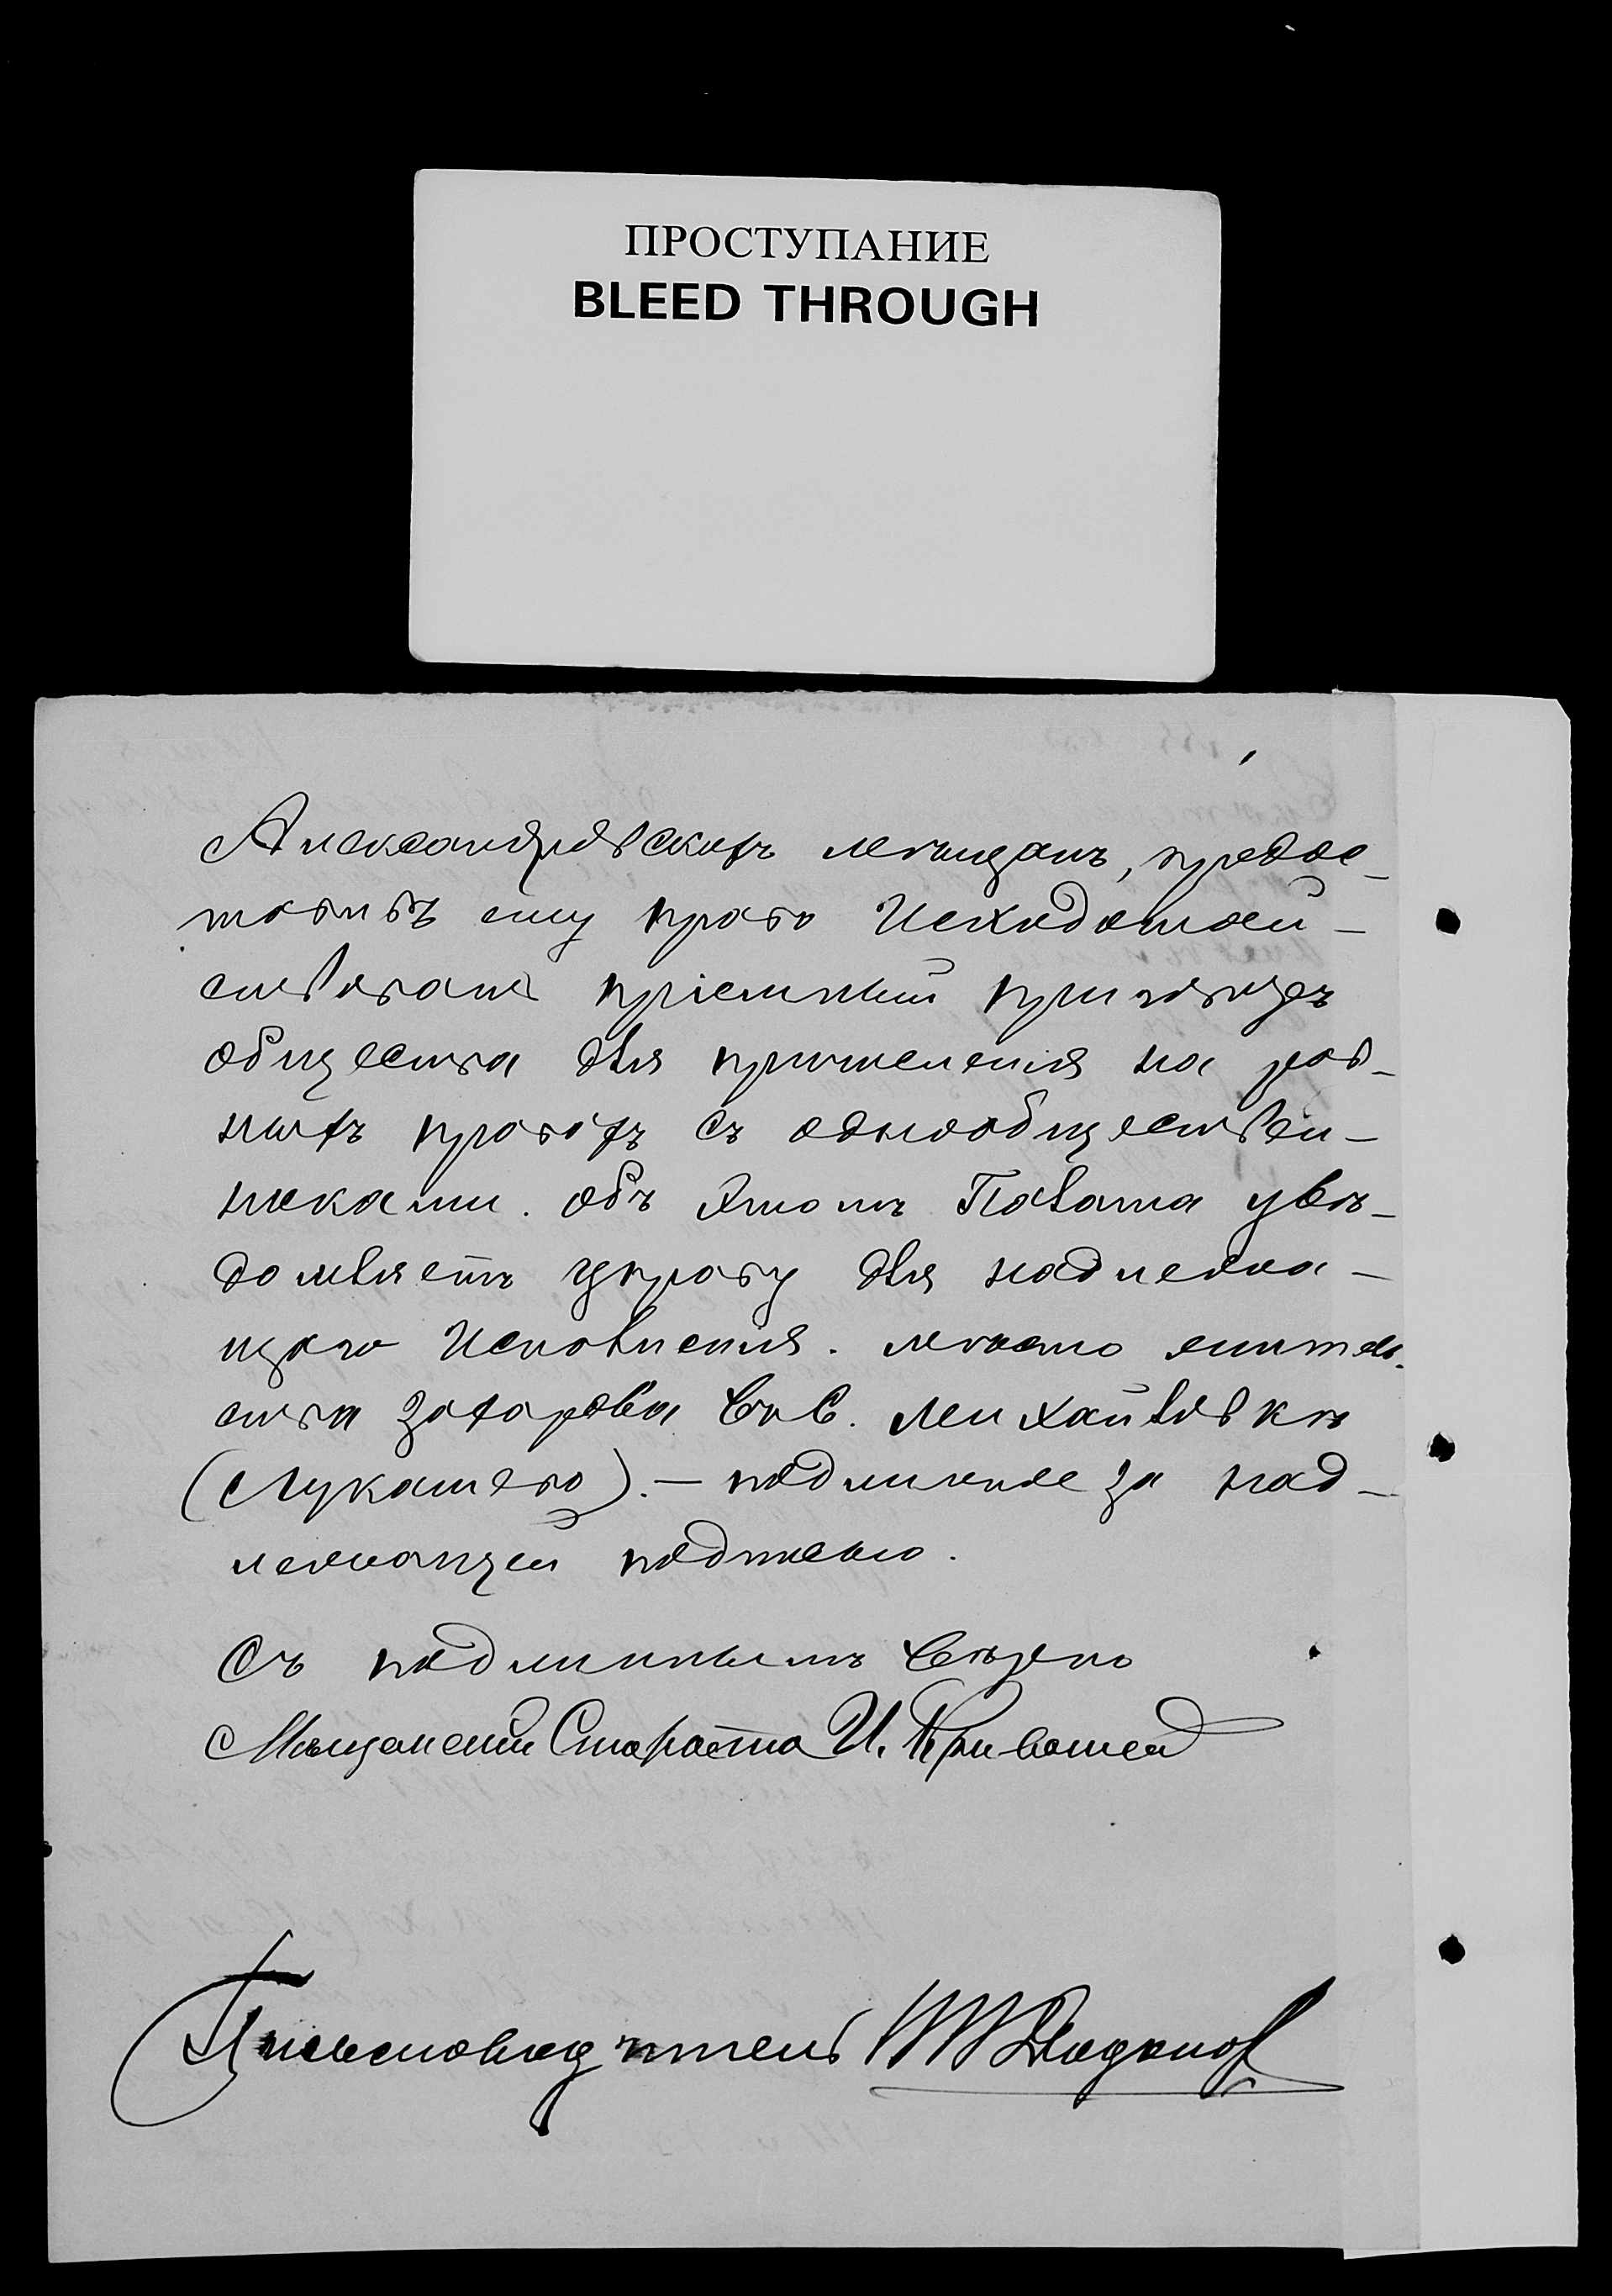 ПРОСТУПАНИЕ
BLEED THROUGH
Александровскихъ мѣщанъ, предос-
тавивъ ему право Исходатай-
ствовать пріемный приговоръ
общества для причисленія на рав-
ныхъ правахъ съ однообществен-
никами. объ этомъ Палата увѣ-
домляетъ управу для надлежа-
щаго Исполненія. мѣсто житель-
ства Захарова Въ С. Михайловкѣ
(Лукашево). — подлинное за над-
лежащей подписью.
Съ подлиннымъ вѣрно
Мѣщанскій Староста И. Кривошей
Письмоводитель